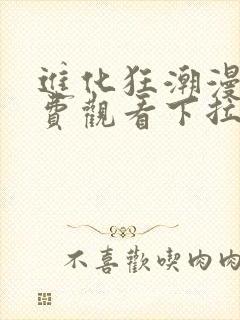 進化狂潮漫
費觀看下拉
不喜歡喫肉肉